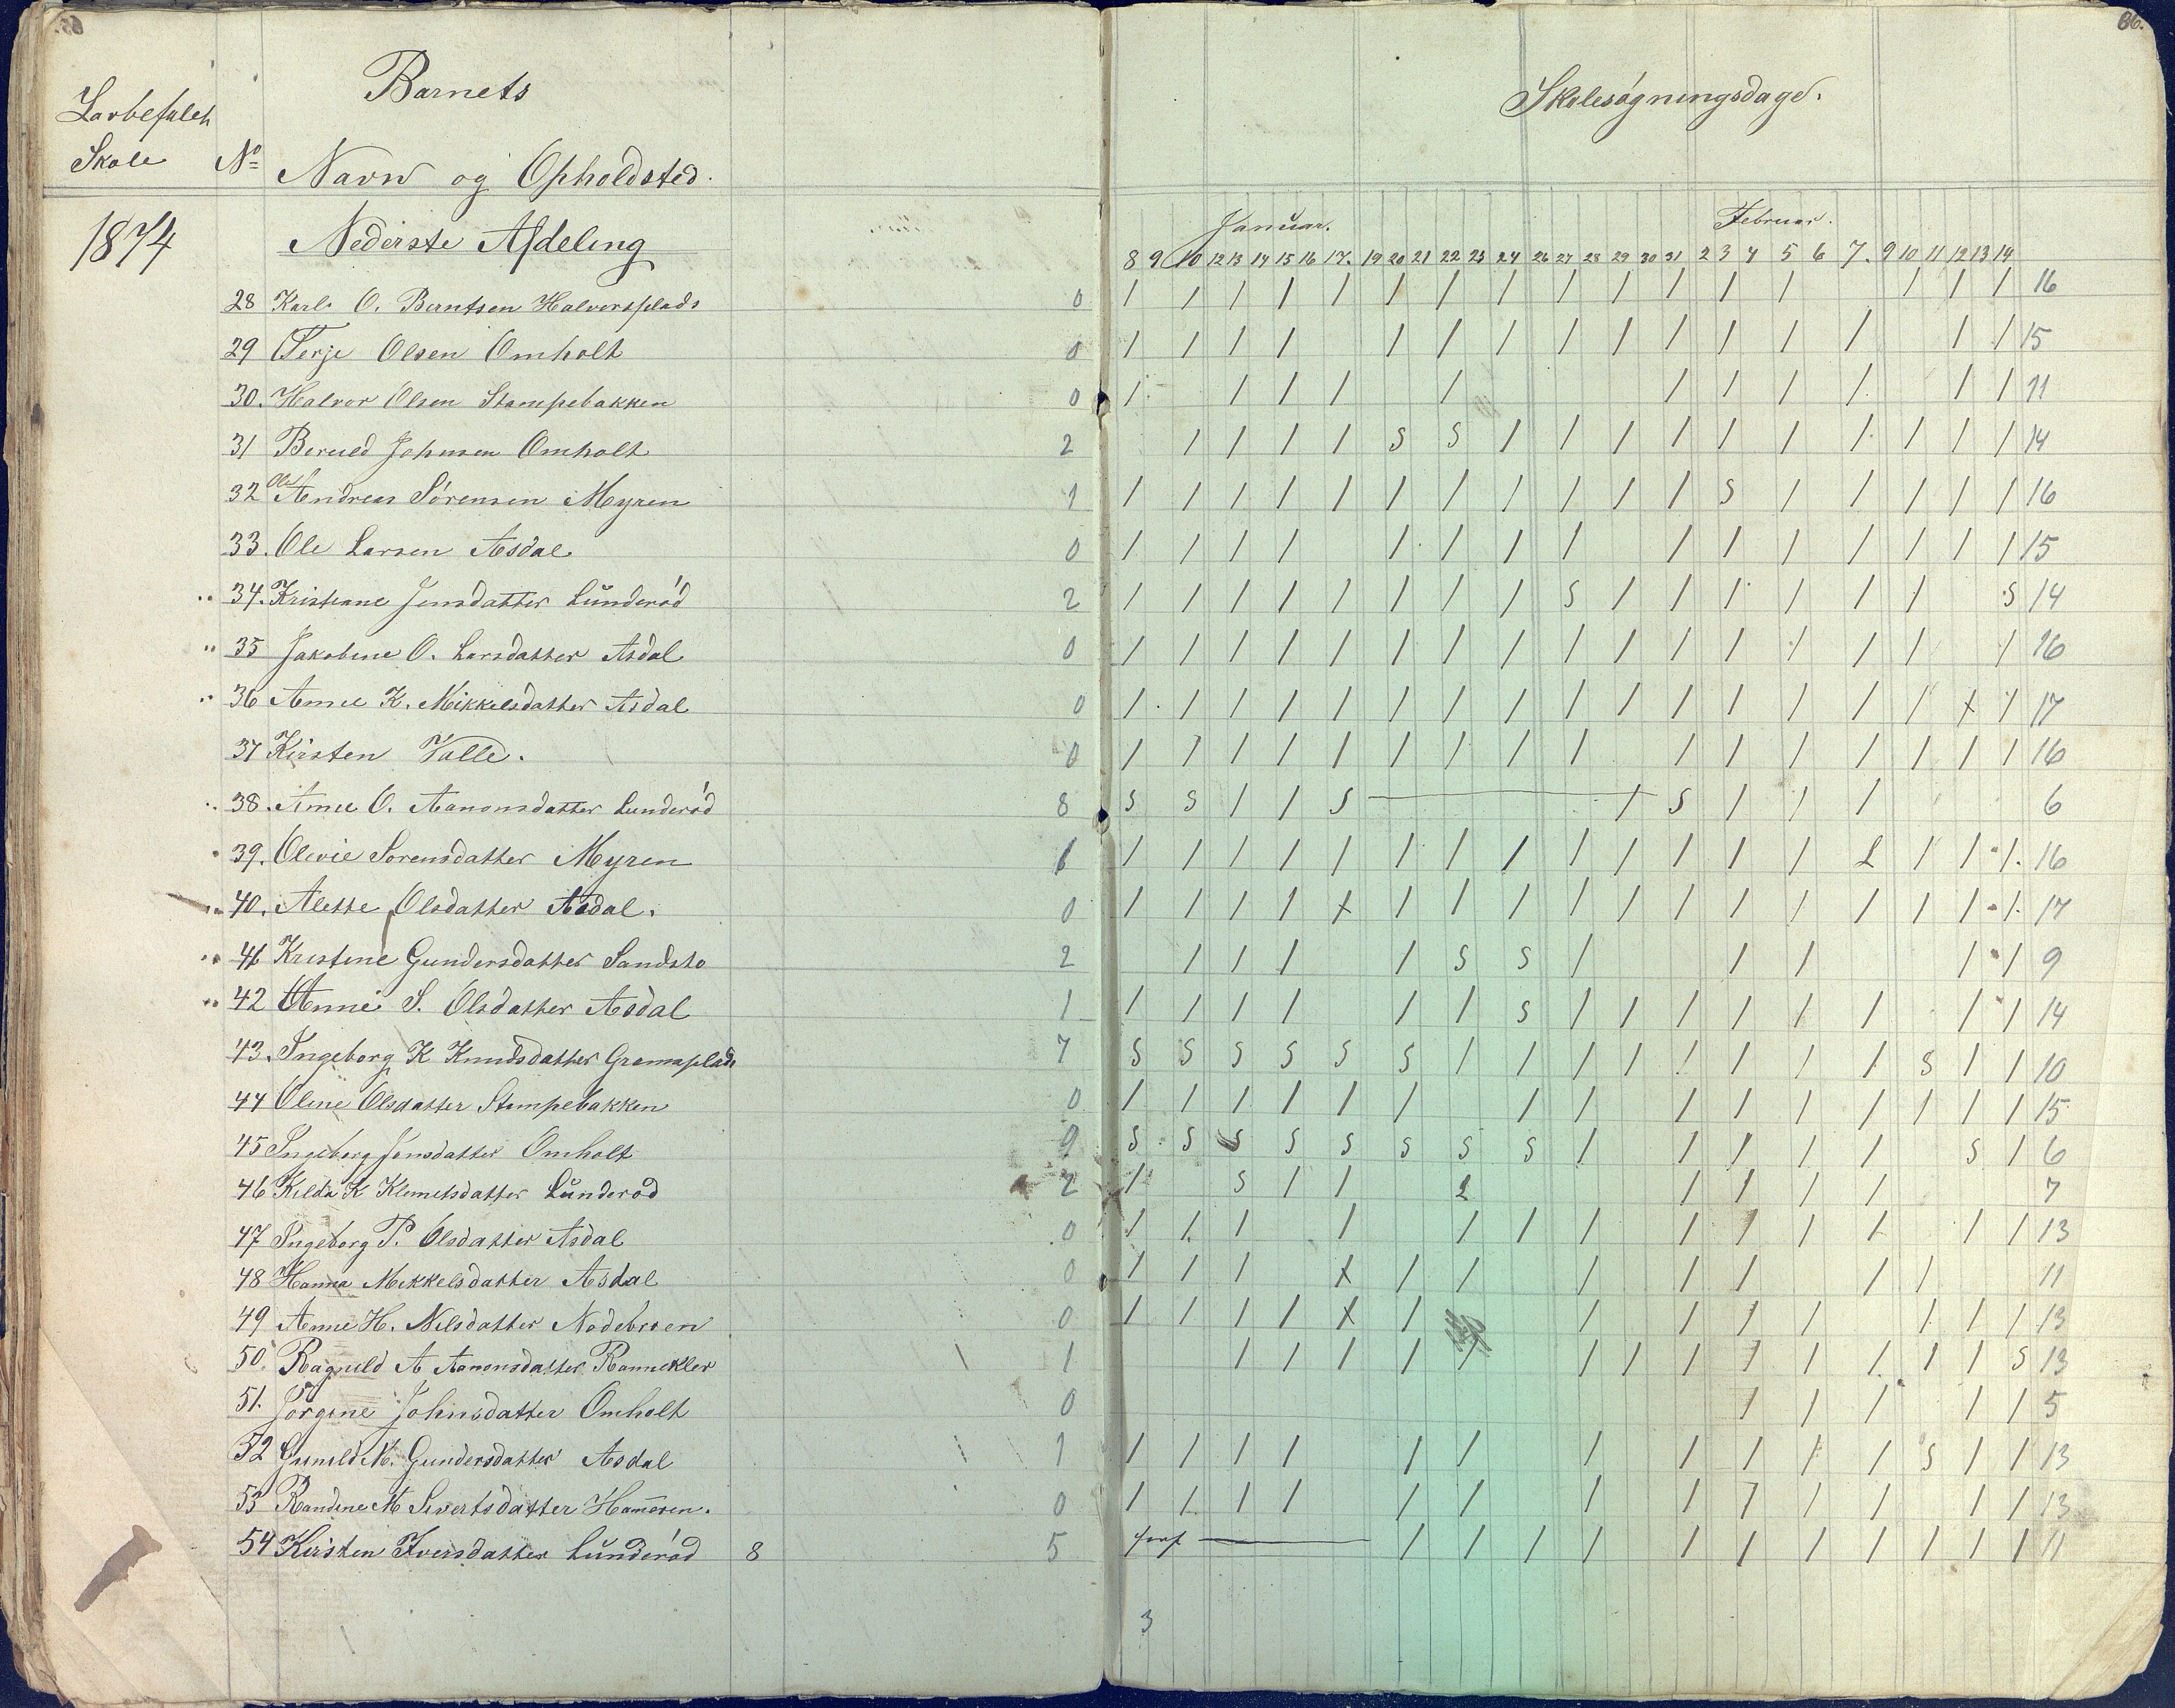 65. 86.
Barnets
Skolesøgningsdage.
Skole No Navn og Opholdsted.
1874 Nederste Afdeling
Januar. Februar.
8 9 10 12 13 14 15 16 17. 19 20 21 22 23 24 26 27 28 29 30 31 2 3 4 5 6 7. 9 10 11 12 13 14
28 Karl O. Berntsen Halvorsplads 0 / / / / / / / / / / / / / / / / 16
29 Terje Olsen Omholt 0 / / / / / / / / / / / / / / / 15
30. Halvor Olsen Stampebakken 0 / / / / / / / / / / / 11
31 Johnsen Omholt 2 / / / / S S / / / / / / / / / / 14
32 Ole Andreas Sörensen Myren 1 / / / / / / / / / / / S / / / / / 16
33. Ole Larsen Asdal 0 / / / / / / / / / / / / / / / 15
34. Kristiane Jensdatter Lunderød 2 / / / / / / / / S / / / / / / S 14
35 Jakobine O. Larsdatter Asdal 0 / / / / / / / / / / / / / / / / 16
36 Anne K. Mikkelsdatter Asdal 0 / / / / / / / / / / / / / / / x / 17
37 Kirsten Valle. 0 / / / / / / / / / / / / / / / / 16
38. Anne O. Aanonsdatter Lunderød 8 S S / / S — / S / / / 6
39. Olevie Sorensdatter Myren 1 / / / / / / / / / / / / / L / / / 16
40. Alette Olsdatter Asdal. 0 / / / / x / / / / / / / / / / / / 17
41 Kristine Gundersdatter Sandsto 2 / / / / S S / / / / / 9
42 Anne S. Olsdatter Asdal 1 / / / / / / S / / / / / / / / 14
43. Ingeborg K Knudsdatter 7 S S S S S S / / / / / / / / S / / 10
44 Oline Olsdatter Stampebakken 0 / / / / / / / / / / / / / / / 15
45 Ingeborg Jensdatter Omholt 9 S S S S S S S S / / / / / S / 6
46 Kilda K Klemetsdatter Lunderød 2 / S / / L / / / / 7
47 Ingeborg P. Olsdatter Asdal 0 / / / / / / / / / / / / / 13
48 Hanna Mikkelsdatter Asdal 0 / / / x / / / / / / / 11
49 Anne H. Nilsdatter Nodebroen 0 / / / / x / / / / / / / / 13
50. Ragnild A Aanonsdatter 1 / / / / / / / / / / / / / S 13
51. Jörgine Johnsdatter Omholt 0 / / / / / 5
52 Gunild M. Gundersdatter Asdal 1 / / / / / / / / / / / S / / 13
53 Randine M Sivertsdatter 0 / / / / / / / / / / / / / 13
54 Kirsten Iversdatter Lunderød 8 5 — / / / / / / / / / / / 11
3